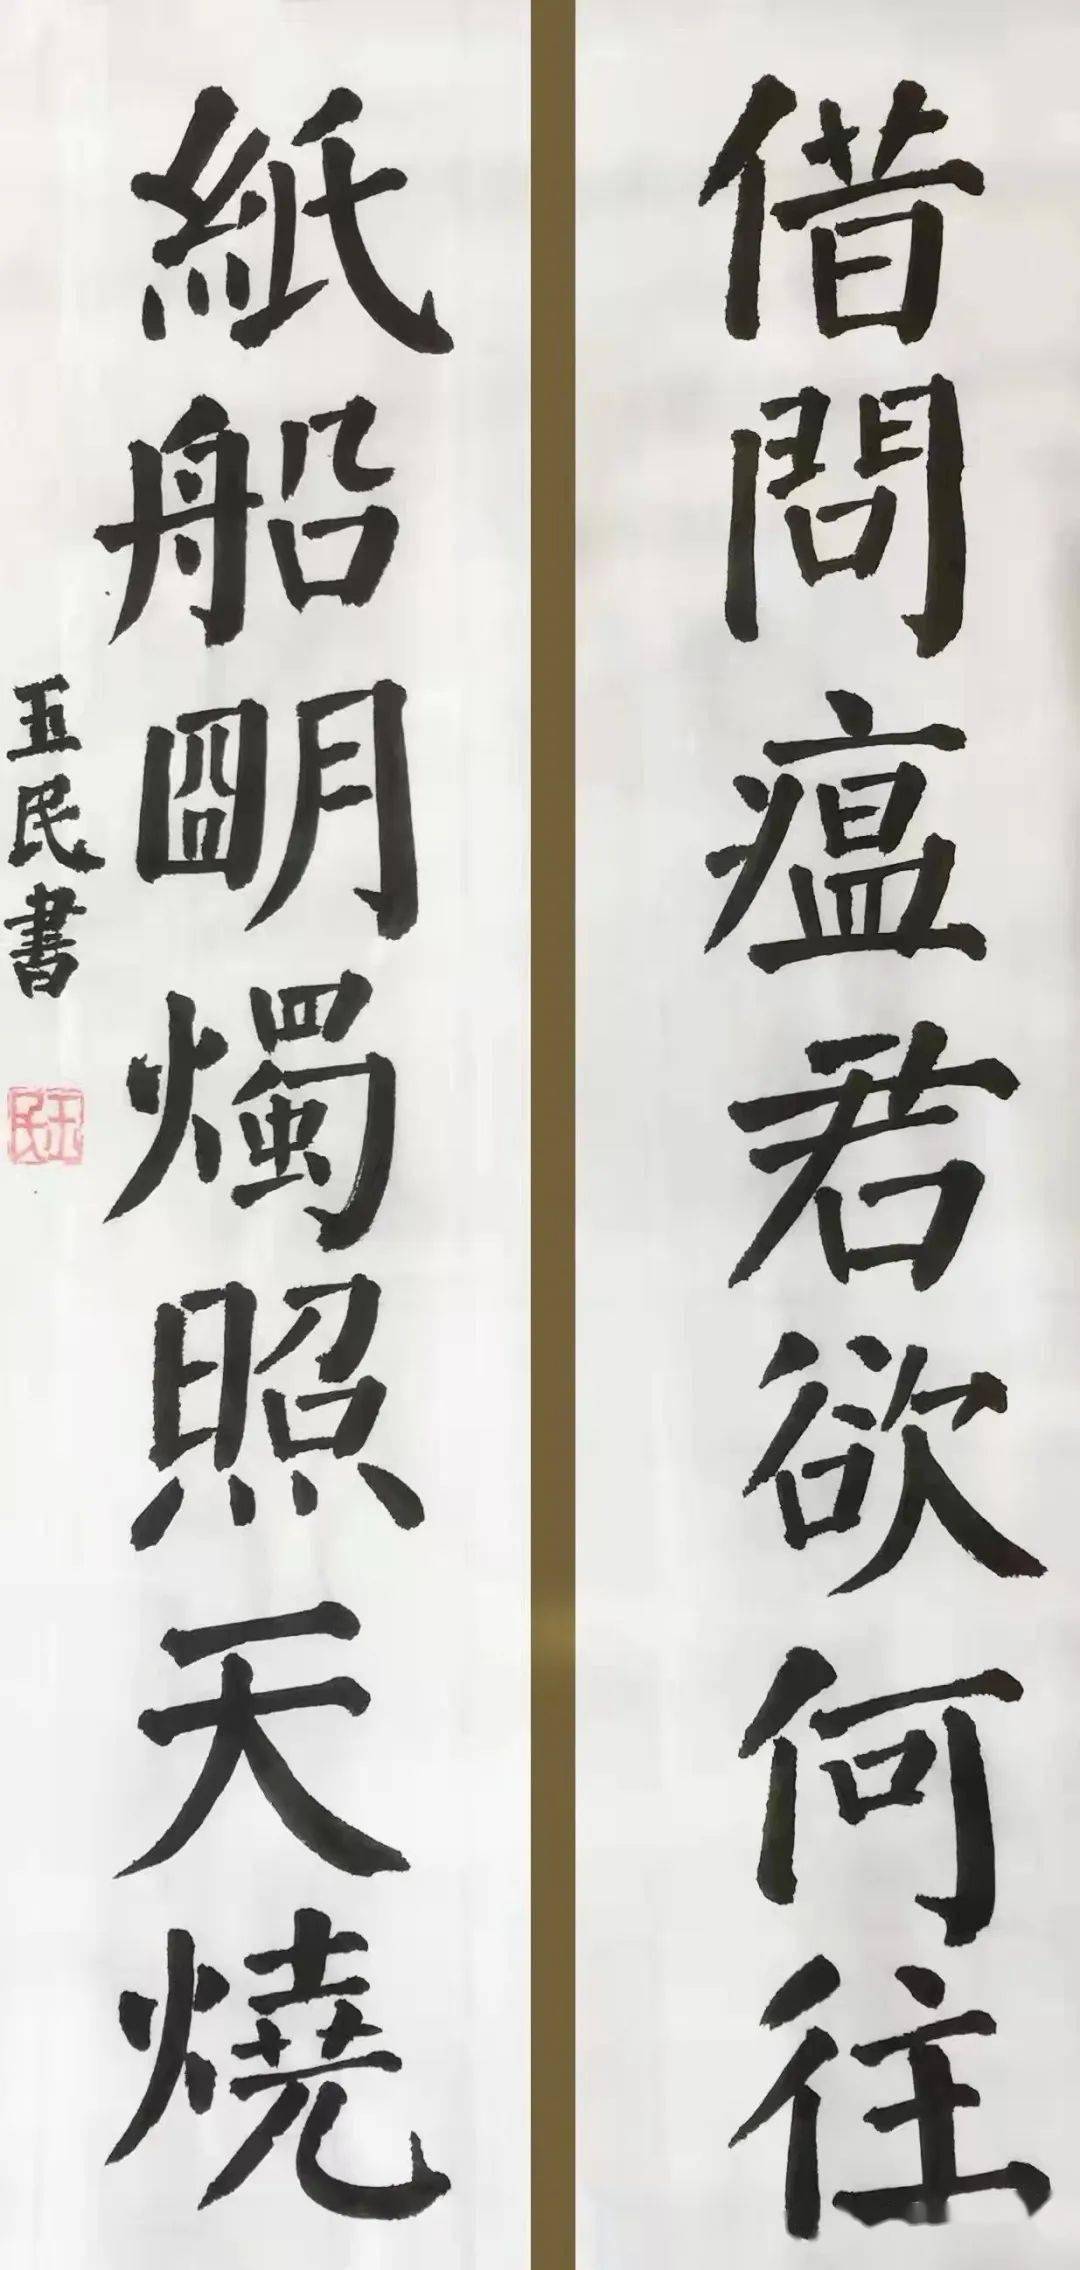 借問瘟君欲何往
紙船明燭照天燒
玉民書